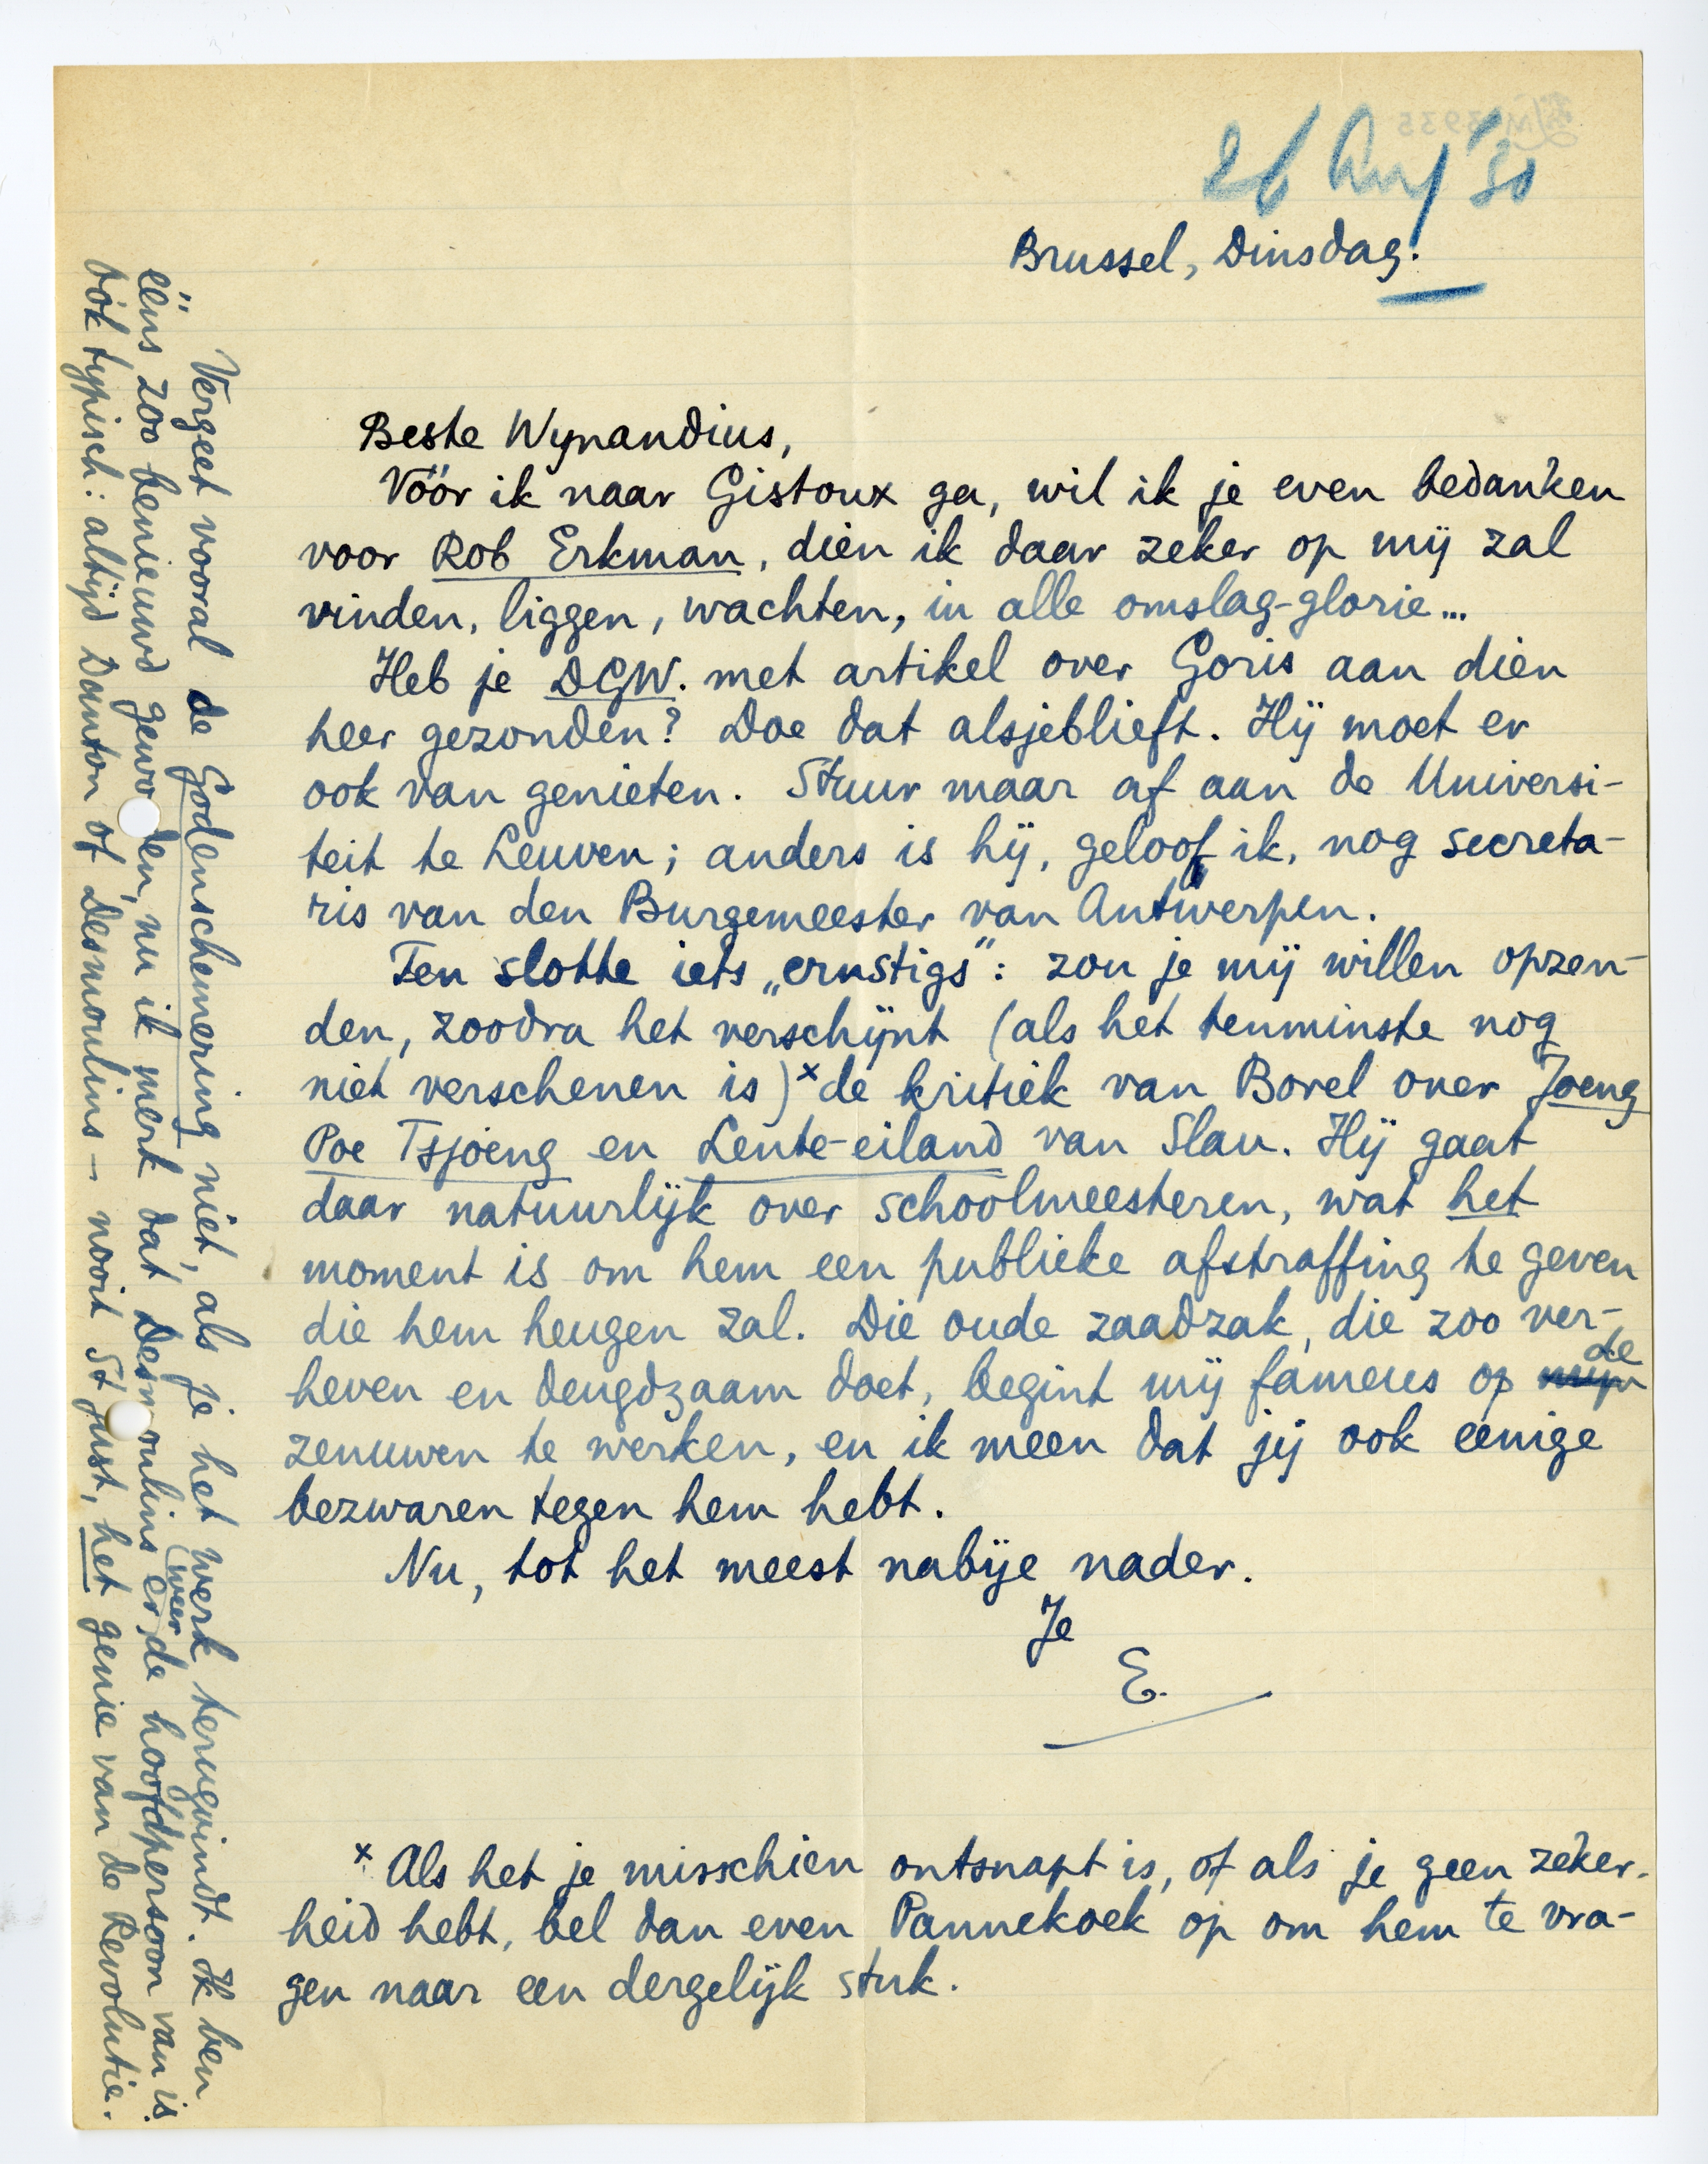 26 Aug '30
Brussel, Dinsdag.
Beste Wynandius,
Vóór ik naar Gistoux ga, wil ik je even bedanken
voor Rob Erkman, dien ik daar zeker op mij zal
vinden, liggen, wachten, in alle omslag-glorie...
Heb je DGW. met artikel over Goris aan dien
heer gezonden? Doe dat alsjeblieft. Hij moet er
ook van genieten. Stuur maar af aan de Universi-
teit te Leuven; anders is hij, geloof ik, nog secreta-
ris van den Burgemeester van Antwerpen.
Ten slotte iets „ernstigs”: zou je mij willen opzen-
den, zoodra het verschijnt (als het tenminste nog
niet verschenen is)x de kritiek van Borel over Joeng
Poe Tsjoeng en Lente-eiland van Slau. Hij gaat
daar natuurlijk over schoolmeesteren, wat het
moment is om hem een publieke afstraffing te geven
die hem heugen zal. Die oude zaadzak, die zoo ver-
heven en deugdzaam doet, begint mij fameus op de
zenuwen te werken, en ik meen dat jij ook eenige
bezwaren tegen hem hebt.
Nu, tot het meest nabije nader.
Je
E.
x Als het je misschien ontsnapt is, of als je geen zeker-
heid hebt, bel dan even Pannekoek op om hem te vra-
gen naar een dergelijk stuk.
Vergeet vooral de Godenschemering niet, als je het werk terugvindt. Ik ben
ééns zoo benieuwd geworden, nu ik merk dat Desmoulins er weer de hoofdpersoon van is.
óók typisch: altijd Danton of Desmoulins – nooit St Just, het genie van de Revolutie.